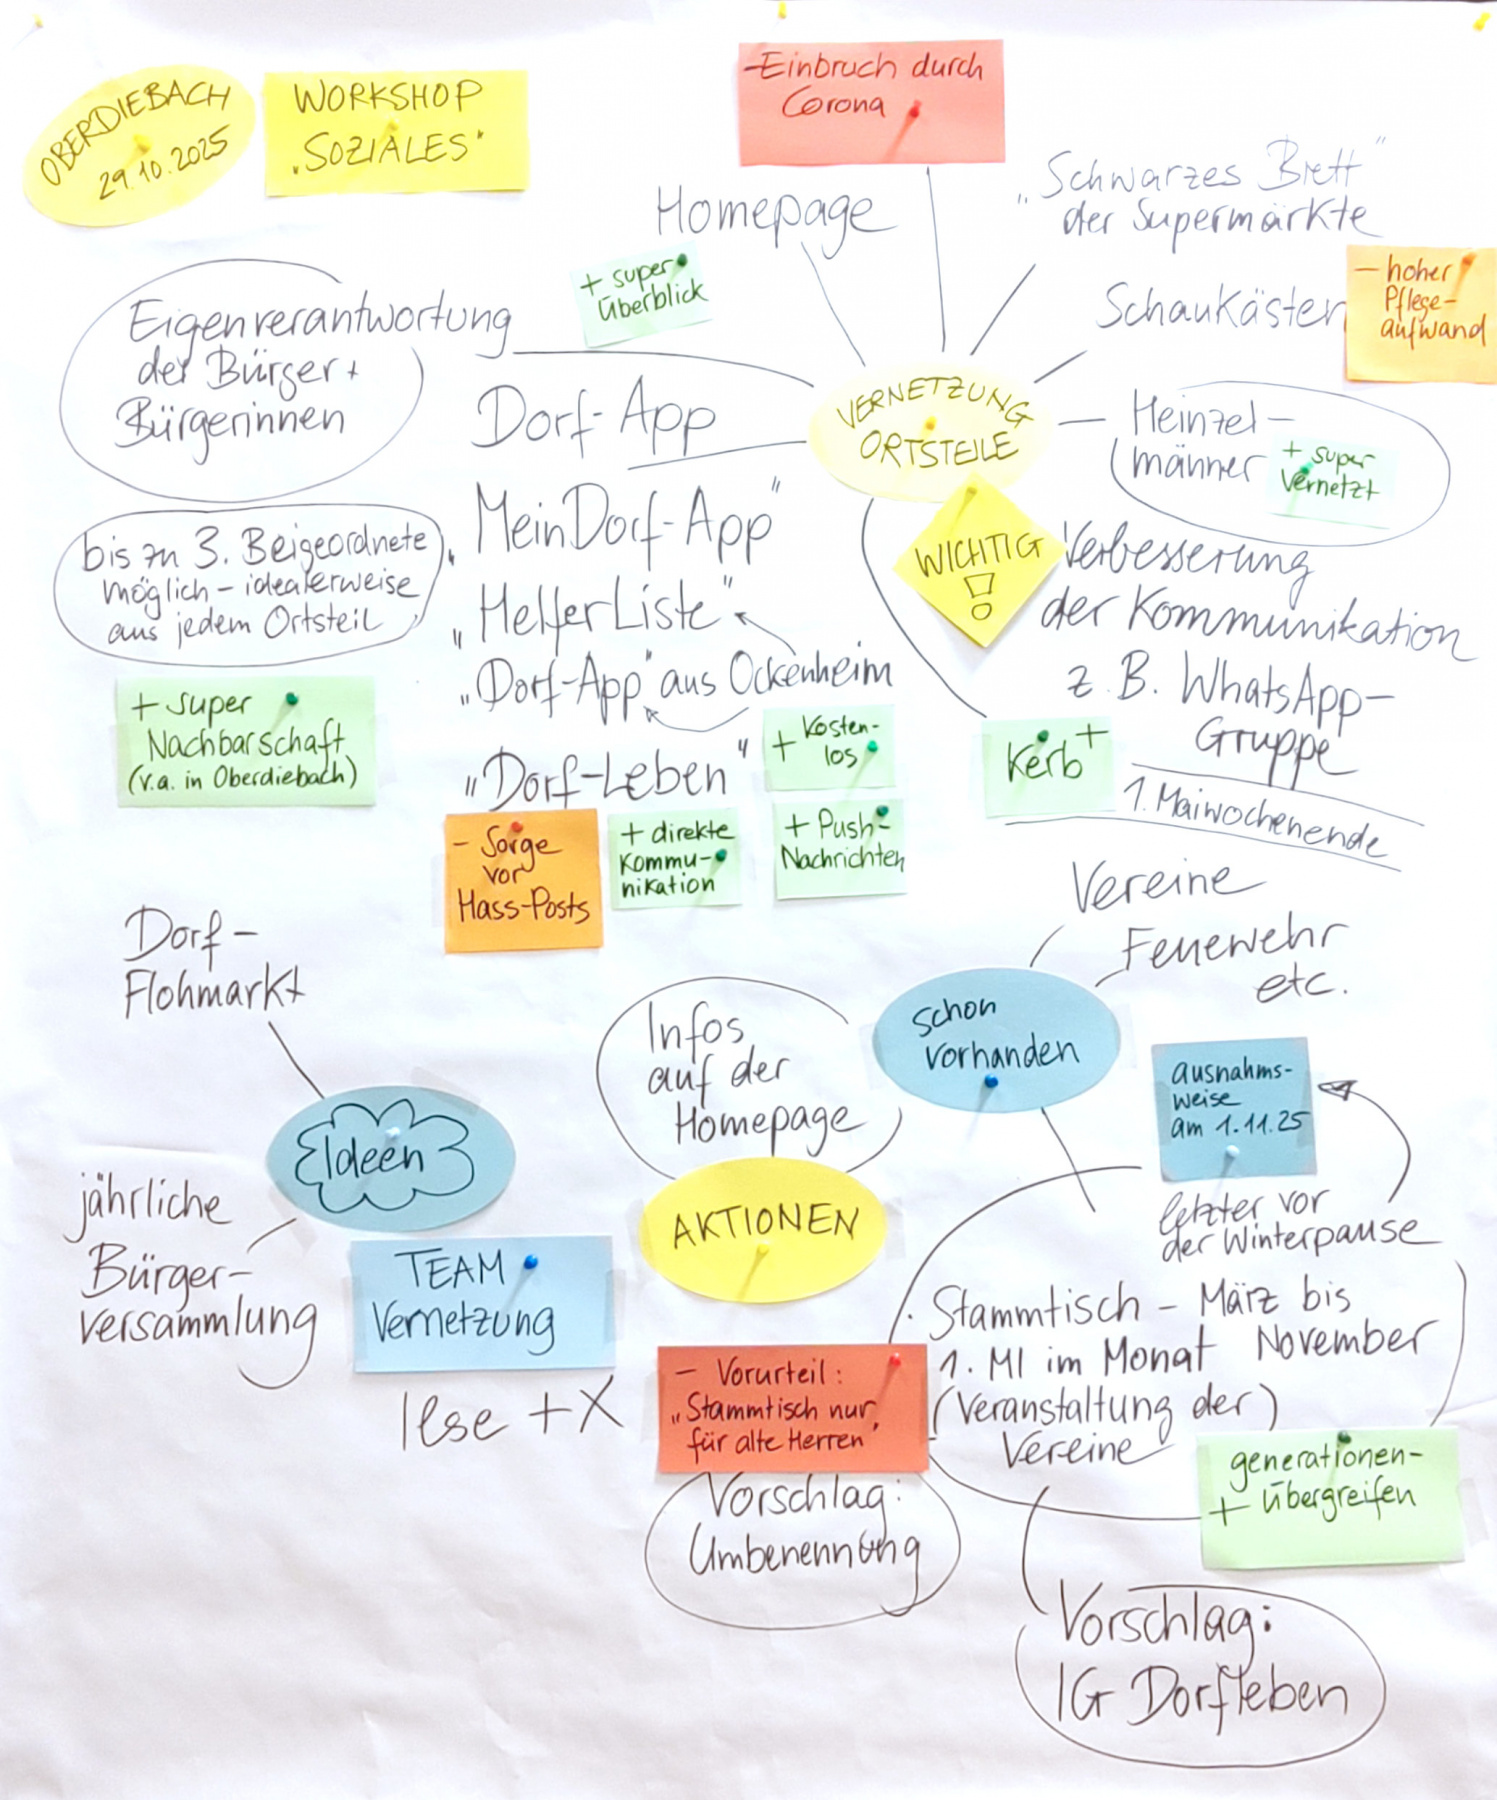 OBERDIEBACH
29.10.2025
WORKSHOP
„SOZIALES"
- Einbruch durch
Corona
Homepage
+ super
Überblick
„Schwarzes Brett"
der Supermärkte
Schaukästen
- hoher
Pflege-
aufwand
Eigenverantwortung
der Bürger +
Bürgerinnen
VERNETZUNG
ORTSTEILE
Heinzel-
männer
+ super
Vernetzt
Dorf-App
„MeinDorf-App"
„HelferListe"
„Dorf-App" aus Ockenheim
„Dorf-Leben"
bis zu 3. Beigeordnete
möglich - idealerweise
aus jedem Ortsteil
+ super
Nachbarschaft
(v.a. in Oberdiebach)
WICHTIG
!
Verbesserung
der Kommunikation
z.B. WhatsApp-
Gruppe
+ Kosten-
los
Kerb +
1. Maiwochenende
- Sorge
vor
Hass-Posts
+ direkte
Kommu-
nikation
+ Push-
Nachrichten
Dorf-
Flohmarkt
Ideen
jährliche
Bürger-
versammlung
TEAM
Vernetzung
Ilse + X
Infos
auf der
Homepage
AKTIONEN
schon
vorhanden
Vereine
Feuerwehr
etc.
ausnahms-
weise
am 1.11.25
letzter vor
der Winterpause
Stammtisch - März bis
November
1. MI im Monat
(Veranstaltung der)
Vereine
- Vorurteil:
„Stammtisch nur
für alte Herren"
Vorschlag:
Umbenennung
generationen-
+ übergreifen
Vorschlag:
IG Dorfleben